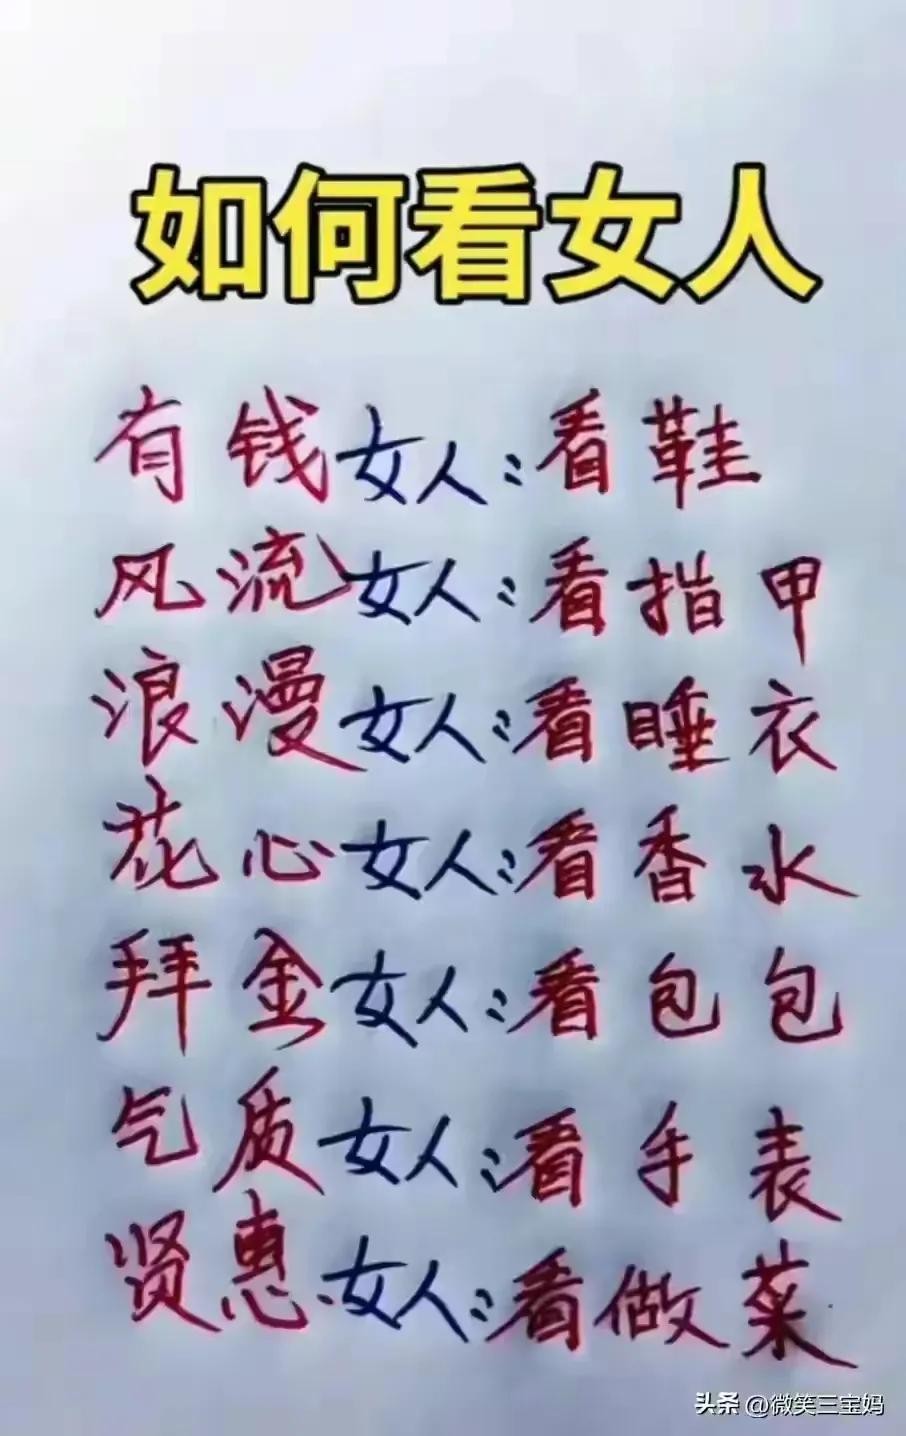 如何看女人
有钱女人:看鞋
风流女人:看指甲
浪漫女人:看睡衣
花心女人:看香水
拜金女人:看包包
气质女人:看手表
贤惠女人:看做菜
头条 @微笑三宝妈